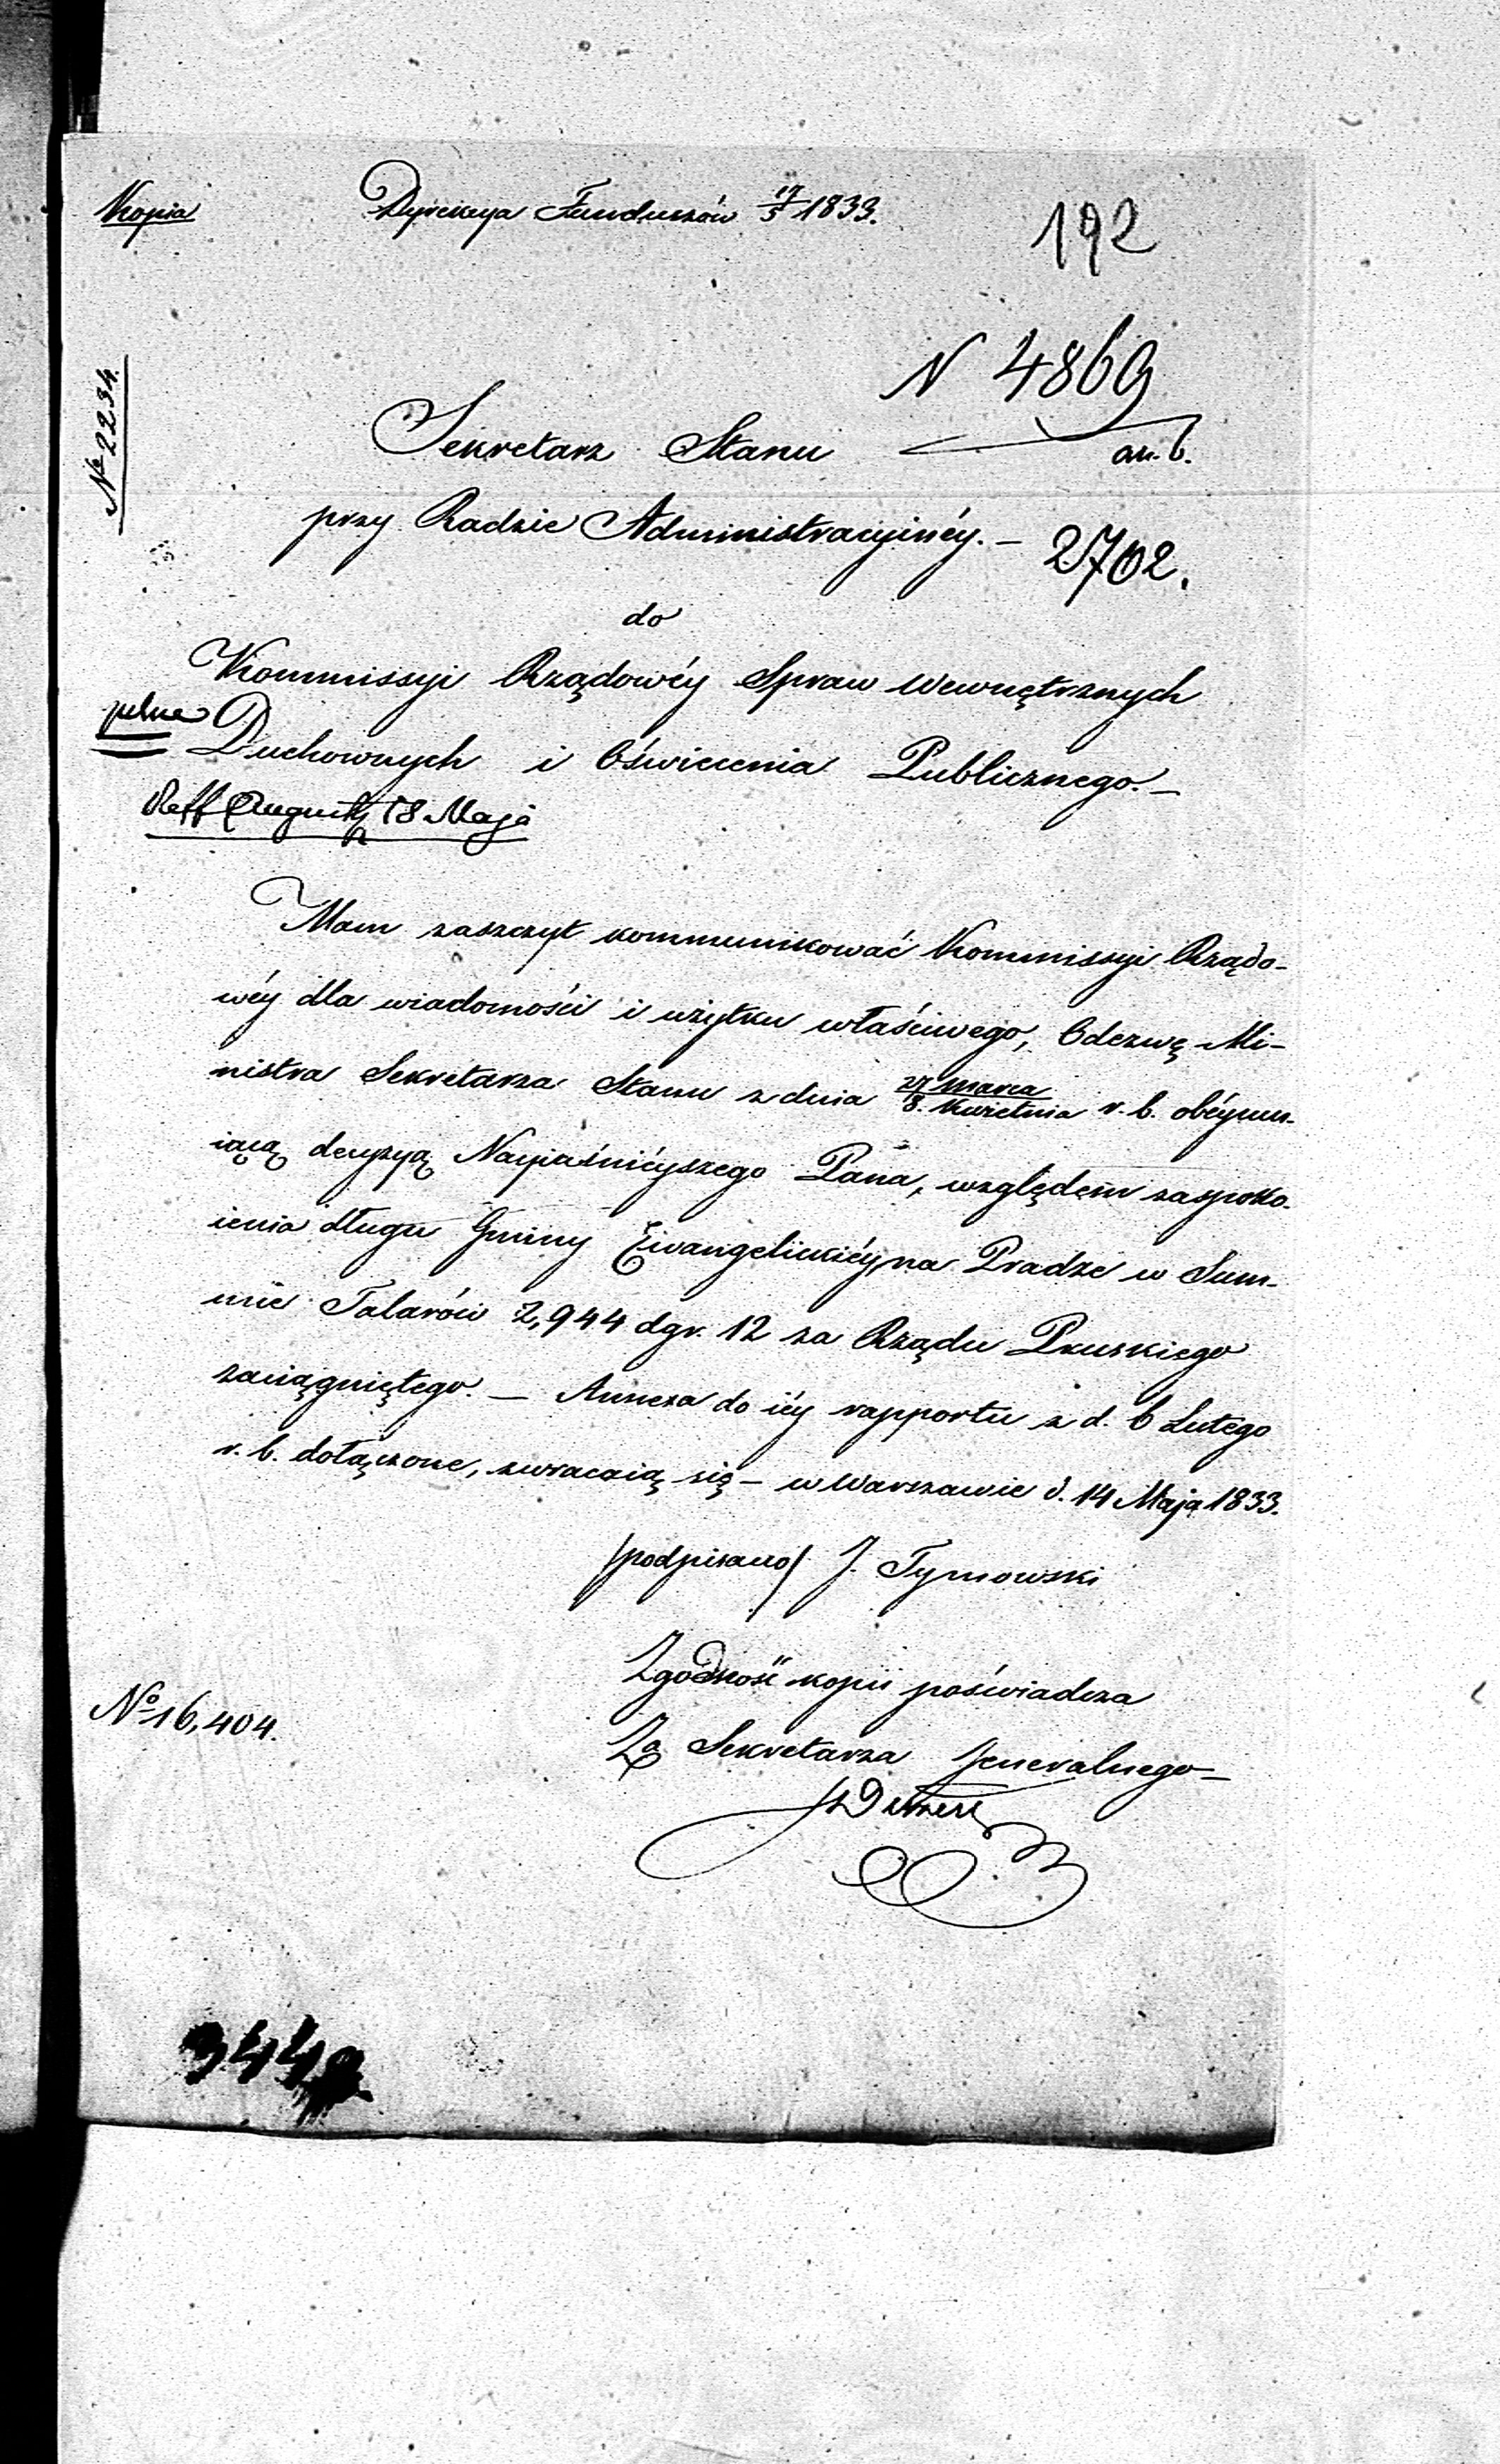 Kopia
Dyrekcya Funduszów 17/5 1833.
192
N 4869
№ 2234.
Sekretarz Stanu
an. b.
przy Radzie Administracyinéy. –
2702.
do
Kommissyi Rządowéy Spraw Wewnętrznych
pilne
Duchownych i Oświecenia Publicznego. –
18 Maja
Mam zaszczyt kommunikować Kommissyi Rządo-
wéy dla wiadomości i użytku właściwego, Odezwę Mi-
nistra Sekretarza Stanu z dnia 27 Marca/8. Kwietnia r. b. obéymu-
iącą decyzyą Nayiaśniéyszego Pana, względem zaspoko-
ienia długu Gminy Ewangelickiéy na Pradze w Sum-
mie Talarów 2,944 dgr. 12 za Rządu Pruskiego
zaciągniętego. – Annexa do iéy rapportu z d. 6 Lutego
r. b. dołączone, zwracaią się – w Warszawie d. 14 Maja 1833.
/podpisano/ J. Tymowski
Zgodność kopii poświadcza
№ 16,404.
Za Sekretarza Jeneralnego –
344